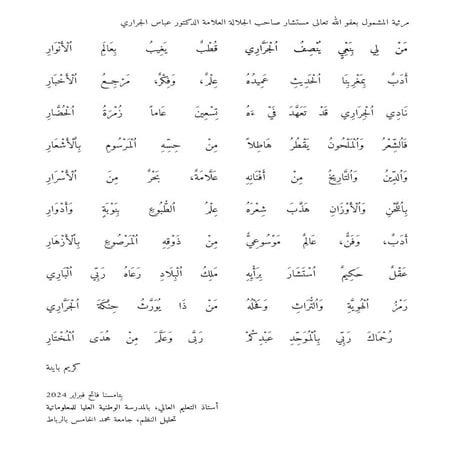 مرثية المشمول بعفو الله تعالى مستشار صاحب الجلالة العلامة الدكتور عباس الجراري
مَنْ لِي بِنَعْيٍ يُنْصِفُ الْجَرَّارِي قُطْبٌ يَغِيبُ بِعَالَمِ الْأَنْوَارِ
أَدَبٌ بِمَغْرِبِنَا الْحَدِيثِ عَمِيدُهُ عِلْمٌ، وَفِكْرٌ، مَرْجِعُ الْأَخْبَارِ
نَادِي الْجِرَارِي قَدْ تَعَهَّدَ فَيْءَهُ تِسْعِينَ عَاماً زُمْرَةُ الْحُضَّارِ
فَالشِّعْرُ وَالْمَلْحُونُ يَقْطُرُ هَاطِلاً مِنْ حِسِّهِ الْمَرْسُومِ بِالْأَشْعَارِ
وَالدِّينُ وَالتَّارِيخُ مِنْ أَفْنَانِهِ عَلَّامَةٌ، بَحْرٌ مِنَ الْأَسْرَارِ
بِاللَّحْنِ وَالْأَوْزَانِ هَذَّبَ شِعْرَهُ عِلْمُ الطُّبُوعِ بِنَوْبَةٍ وَأَدْوَارِ
أَدَبٌ، وَفَنٌّ، عَالَمٌ مَوْسُوعِيٌّ مِنْ ذَوْقِهِ الْمَرْصُوعِ بِالْأَزْهَارِ
عَقْلٌ حَكِيمٌ اسْتَشَارَ بِرَأْيِهِ مَلِكُ الْبِلَادِ رَعَاهُ رَبِّي الْبَارِي
رَمْزُ الْهُوِيَّةِ وَالتُّرَاثِ وَفَحْلُهُ مَنْ ذَا يُوَرَّثُ حِنْكَةَ الْجَرَّارِي
رُحْمَاكَ رَبِّي بِالْمُوَحِّدِ عَبْدِكُمْ رَبَّى وَعَلَّمَ مِنْ هُدَى الْمُخْتَارِ
كريم بايدة
بتامسنا فاتح فبراير 2024
أستاذ التعليم العالي، بالمدرسة الوطنية العليا للمعلوماتية
وتحليل النظم، جامعة محمد الخامس بالرباط